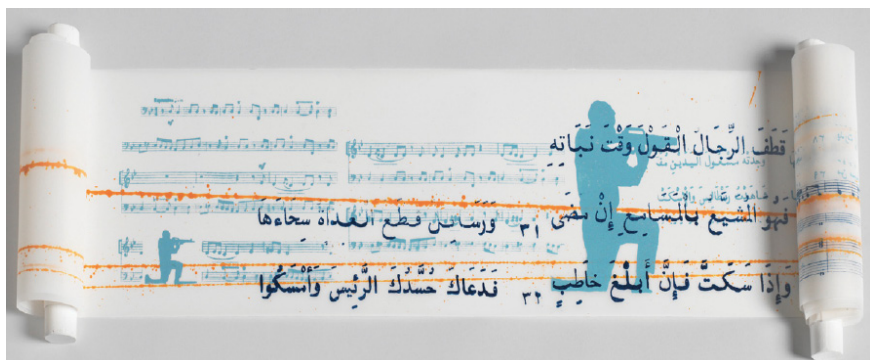 قَطَفَ الرِّجَالُ الْقَوْلَ وَقْتَ نَبَاتِهِ
وجدته مشغول اليدين
فَهْوَ الْمُشَيَّعُ بِالْمَسَامِعِ إِنْ مَضَى ٣١ وَرَسَائِلٍ قَطَعَ الْعُدَاةُ سِحَاءَهَا
وَإِذَا سَكَتَّ فَإِنَّ أَبْلَغَ خَاطِبٍ ٣٢ فَدَعَاكَ حُسَّدُكَ الرَّئِيسَ وَأَمْسَكُوا